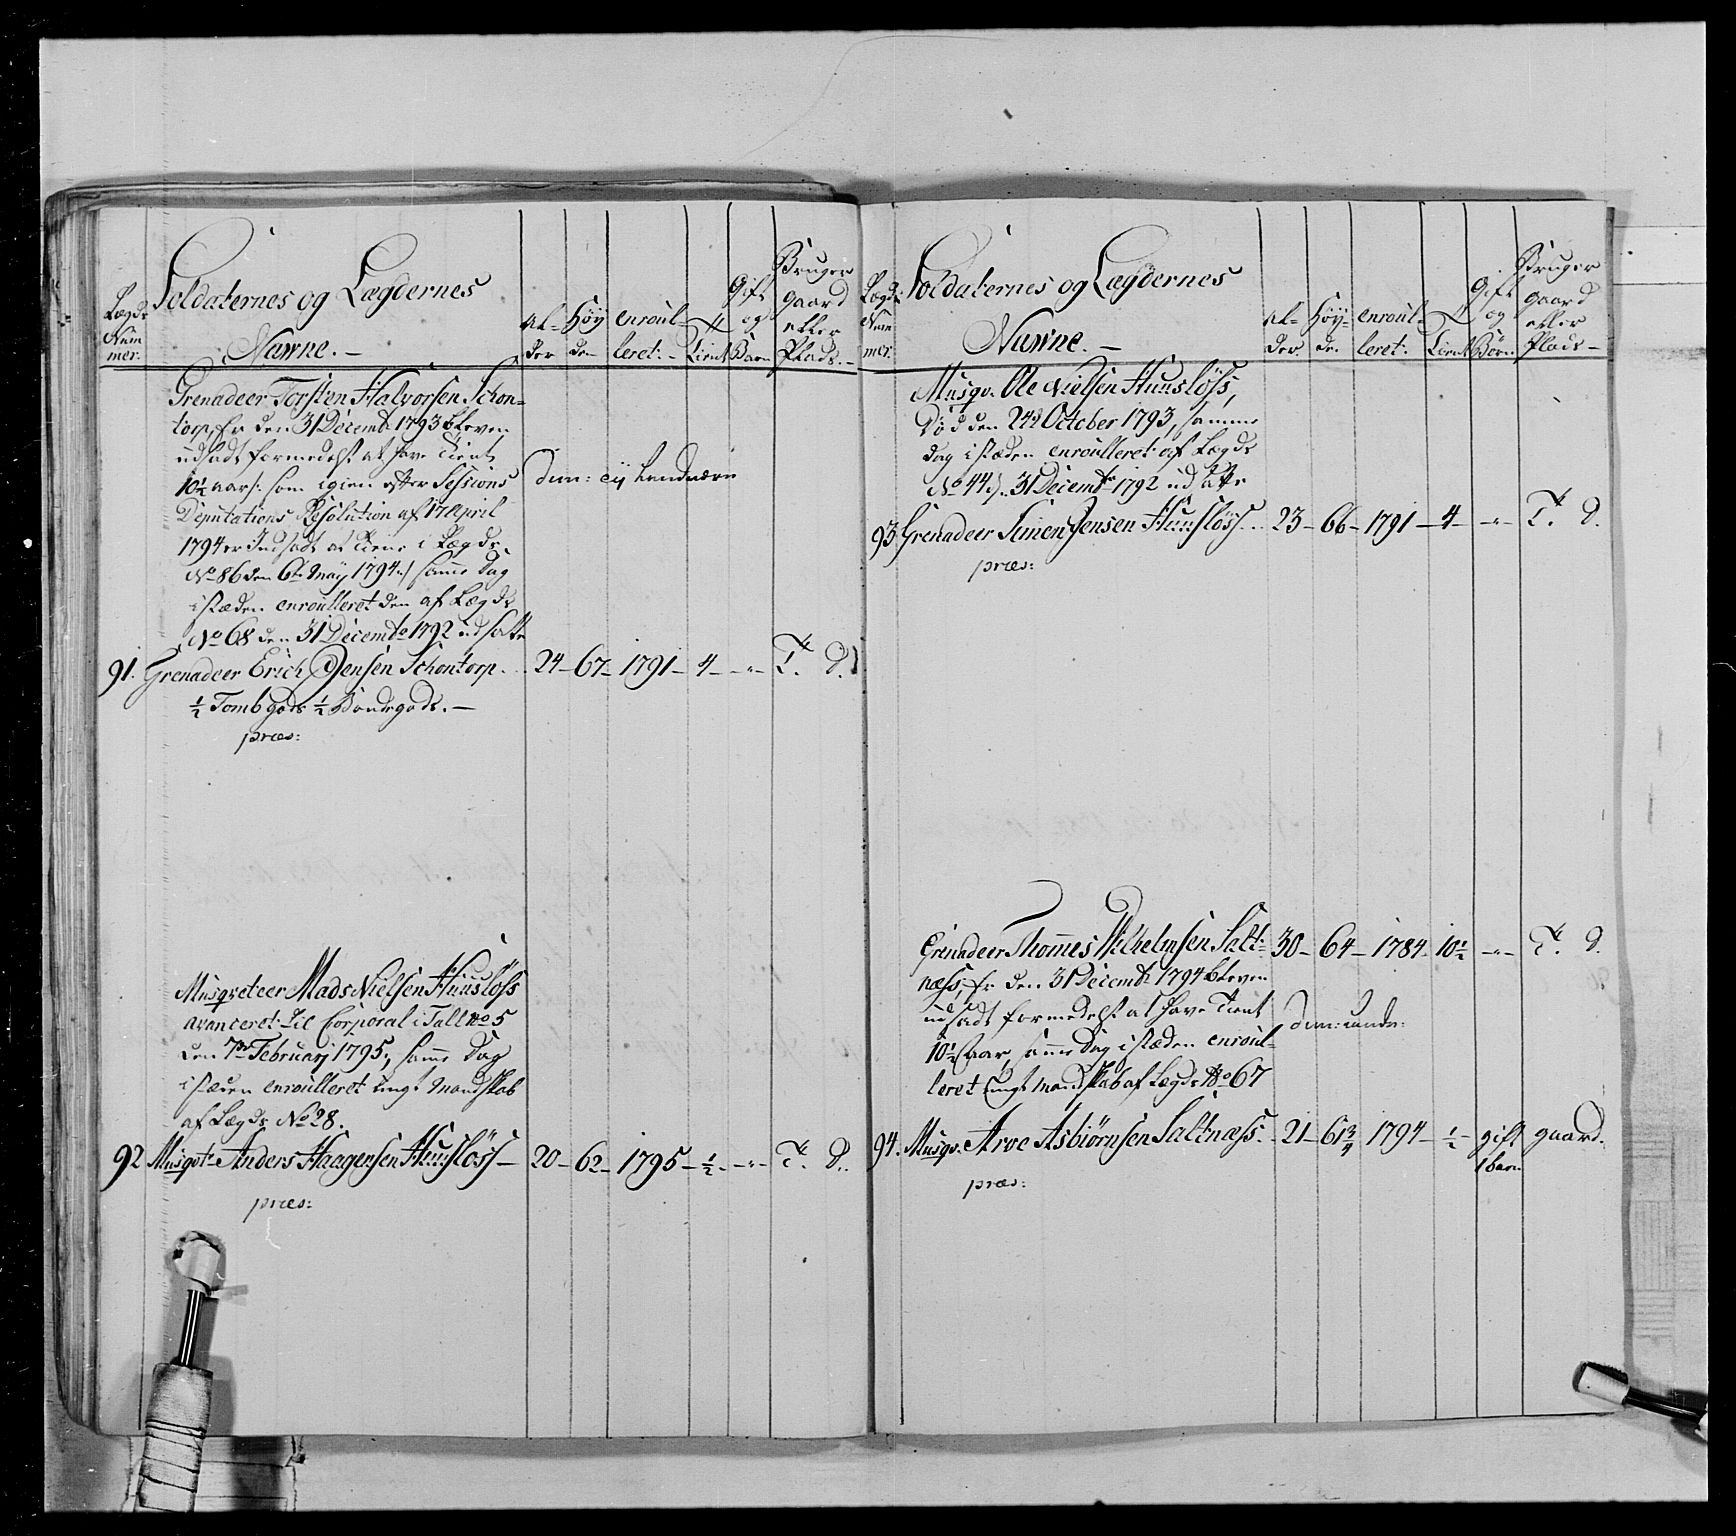 Lægds Nummer.
Soldaternes og Lægdernes
Navne. –
Al-
der
Höy
de
enroul-
leret: –
Tient
Gift
og
Barn
Bruger
gaard
eller
Plads. –
Grenadeer Torsten Halvorsen Schon-
torp, er den 31 Decembr 1793 bleven
udsadt formedelst at have Tient
10½ aar /: som igien efter Sessions
Deputations Resolution af 17 April
1794 er Indsadt at Tiene i Lægds
No 86 den 6te Maÿ 1794 :/ samme Dag
i stæden enroulleret den af Lægds
No 68 den 31 Decembr 1792 udsatte
dim: eÿ Landværn
91. Grenadeer Erich Jensen Schontorp. 24 – 67 – 1791 – 4 – – " – T. d.
½ Tombgods ½ Bondegods. –
præs:
Musqveteer Mads Nielsen Huuslöss
avanceret til Corporal i Tall No 5
den 7de Februarj 1795, samme Dag
i stæden enroulleret ungt Mandskab
af Lægds No 28.
92 Musqvt: Anders Haagensen Huuslöss – 20 – 62 – 1795 – ½ – – " – T. d.
præs:
Lægds
Num
mer.
Soldaternes og Lægdernes
Navne. –
Al-
der.
Höy-
de.
enroul-
leret:
Tient
Gift
og
Börn
Bruger
gaard
eller
Plads –
Musqv. Ole Nielsen Huuslöss,
Död den 24de October 1793, samme
dag i stæden enroulleret af Lægds
No 44 d. 31 Decembr 1792 udsatte
93 Grenadeer Simen Jensen Huuslöss. – 23 – 66 – 1791 – 4 – – " – T. d.
præs:
Grenadeer Thommes Wilhelmsen Salt- 30 – 64 – 1784 – 10½ – " – T. d.
næss, er den 31 Decembr 1794 bleven
udsadt formedelst at have Tient
10½ Aar, samme Dag i stæden enroul-
leret ungt Mandskab af Lægds No 67
dim: landv:
94. Musqv. Arve Asbiörnsen Saltnæss. – 21 – 61¾ – 1794 – ½ – gift gaard.
1 barn
præs: